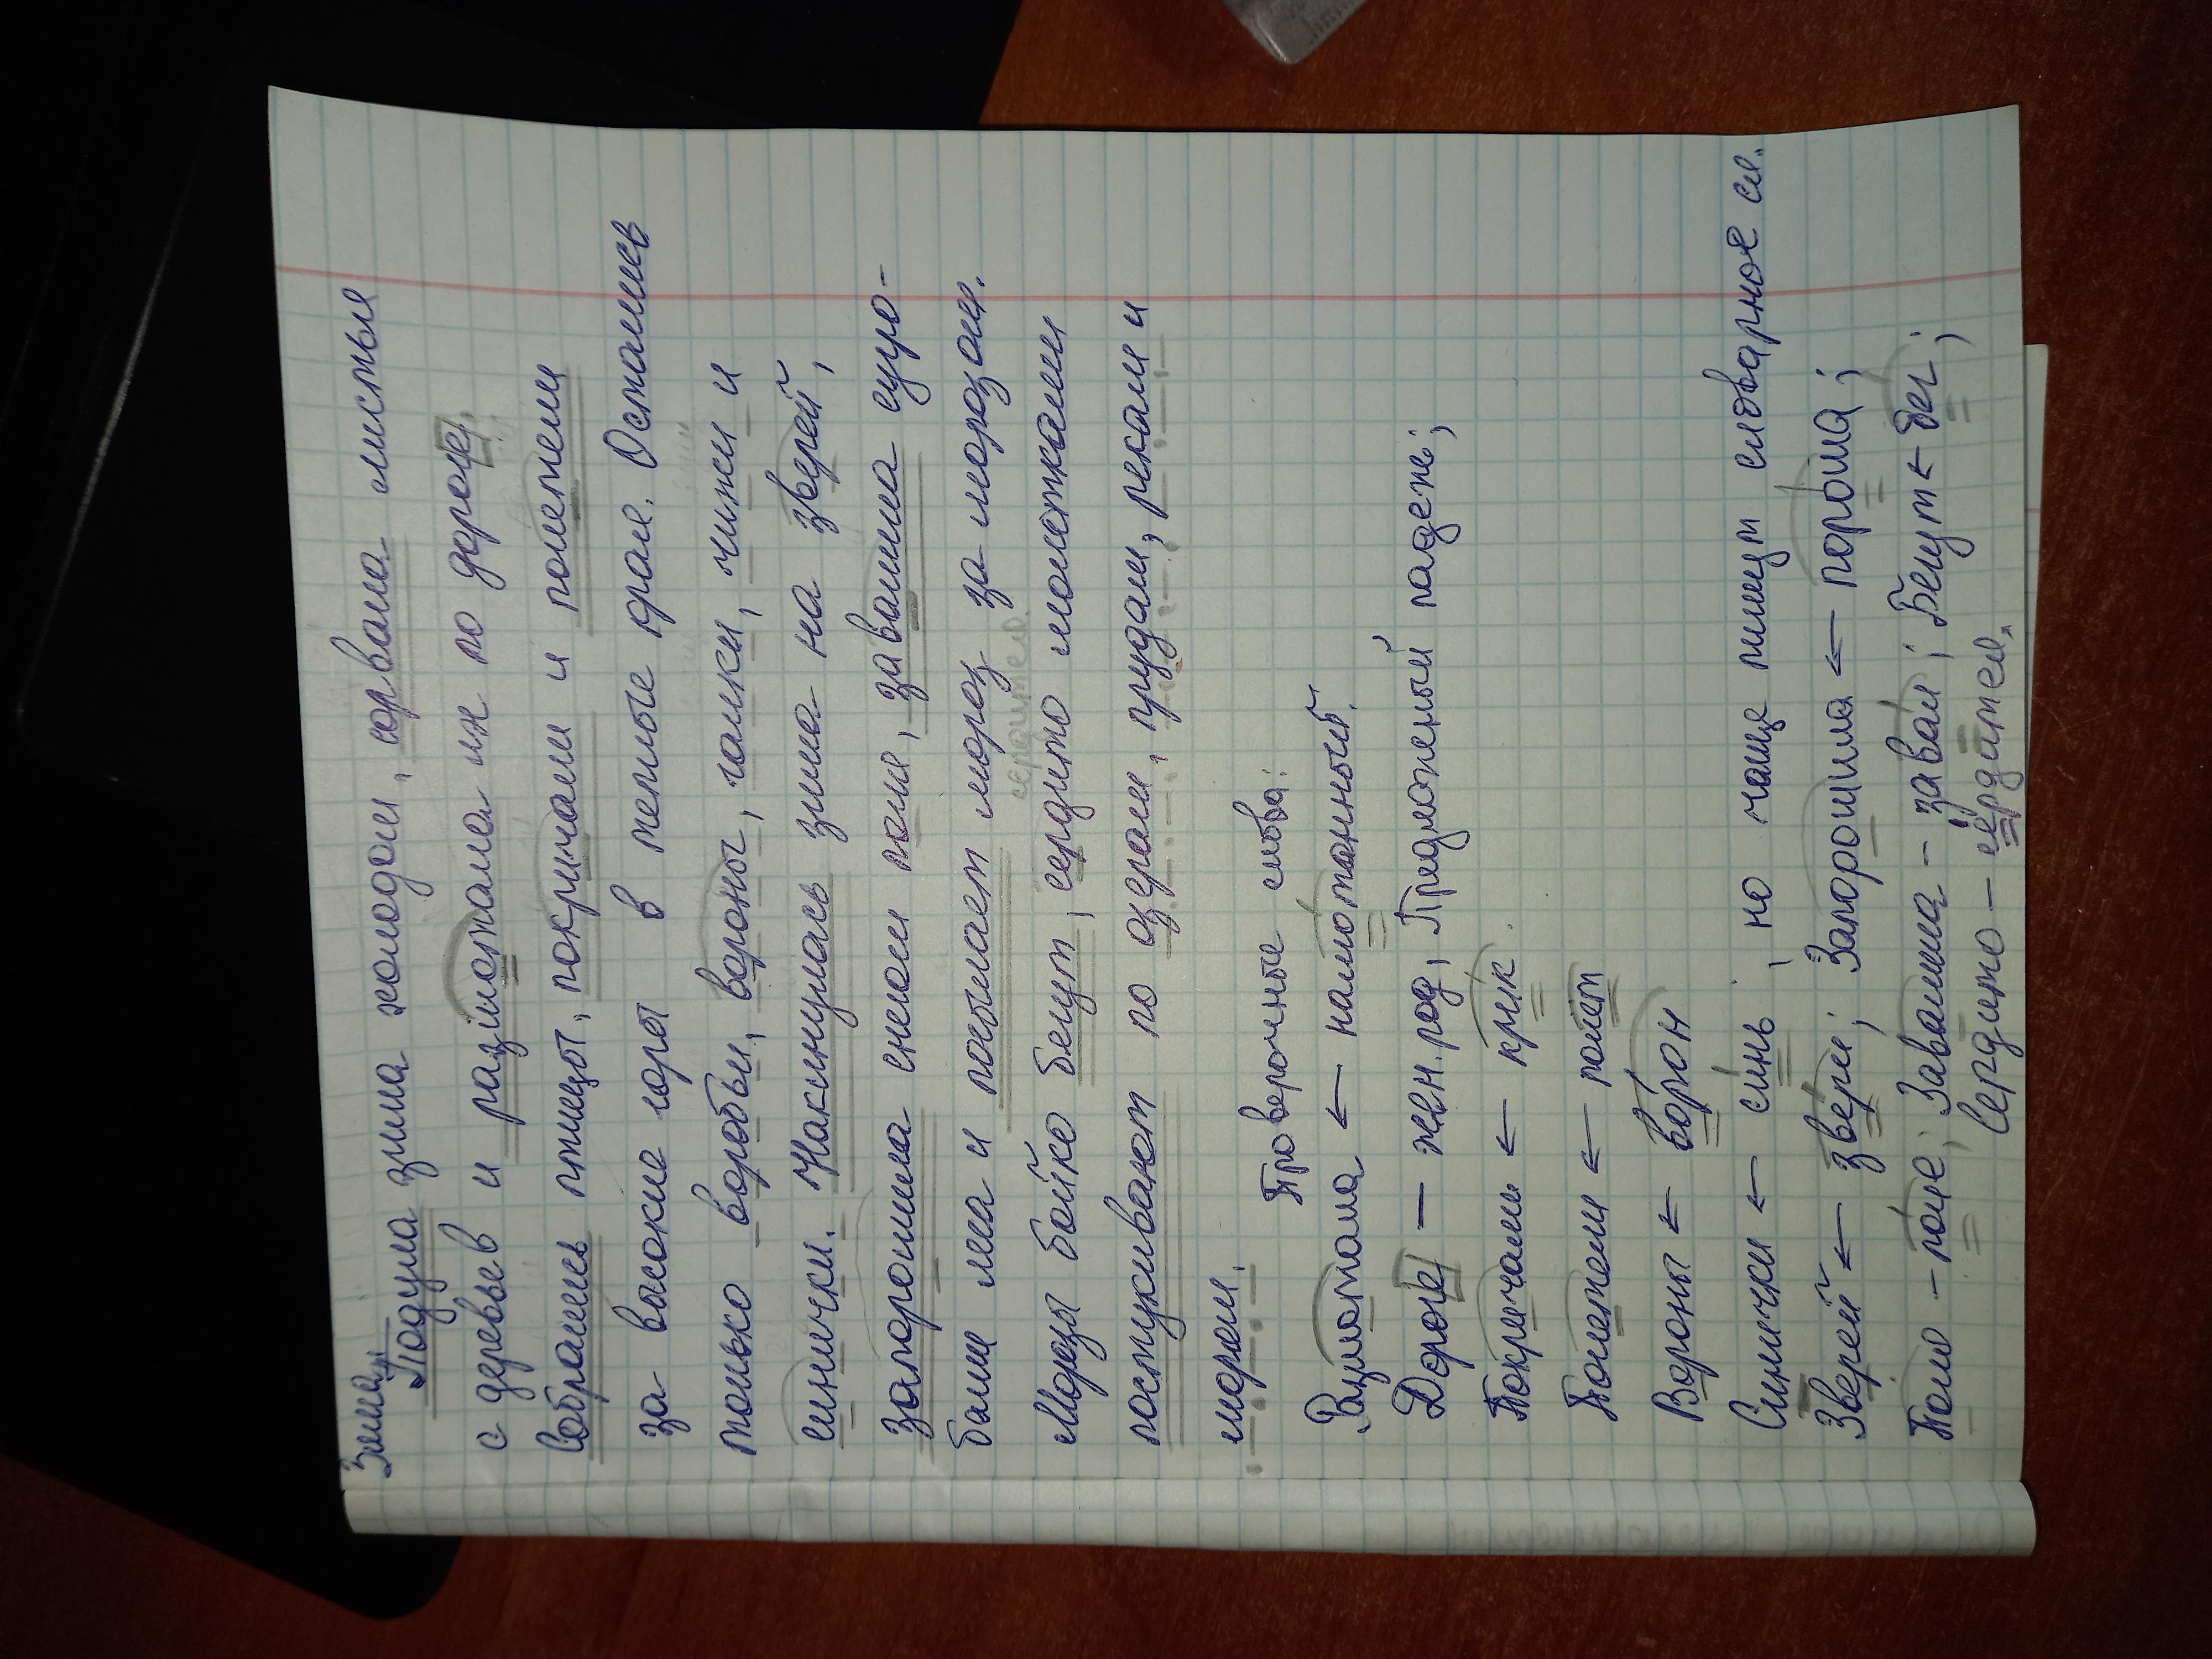 Зима.
Подула зима холодом, сорвала листья
с деревьев и разметала их по дороге.
Собрались птицы, покричали и полетели
за высокие горы в теплые края. Остались
только воробьи, вороны, галки, чижи и
синички. Накинулась зима на зверей,
запорошила снегом поля, завалила сугро-
бами леса и посылает мороз за морозом.
Морозы бойко бегут, сердито молотками
постукивают по озерам, прудам, рекам и
морям.
Проверочные слова:
намотанный.
Дороге – жен. род, Предложный падеж;
Покричали ← крик.
Полетели ← полёт
Вороны ← ворон
Синички ← синь; но чаще пишут словарное сл.
Зверей ← звери; Запорошила ← пороша;
Поля – поле; Завалила – завал; Бегут ← бег;
Сердито – сердится.